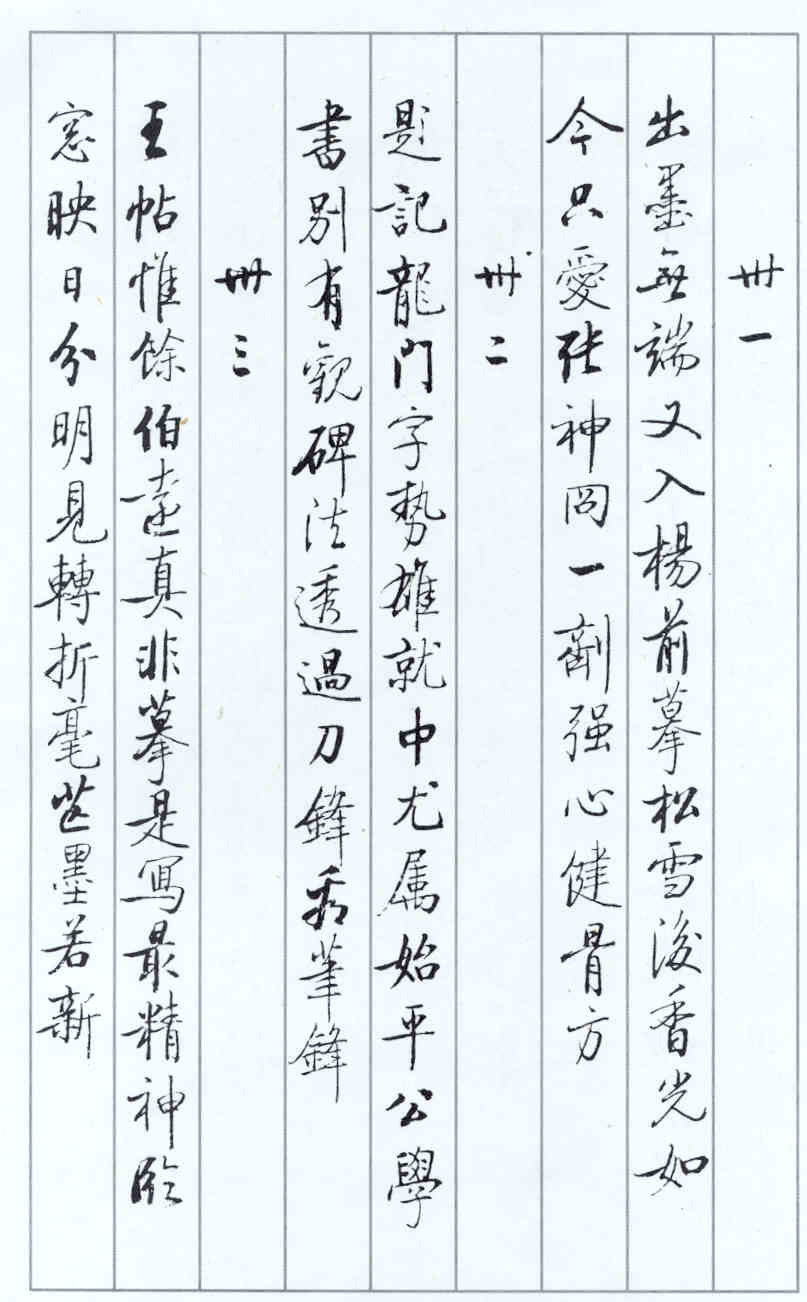 卌一
出墨無端又入楊前摹松雪後香光如
今只愛張神冏一劑强心健骨方
卌二
題記龍門字勢雄就中尤属始平公學
書別有觀碑法透過刀鋒看筆鋒
卌三
王帖惟餘伯遠真非摹是寫最精神臨
窓映日分明見轉折毫芒墨若新